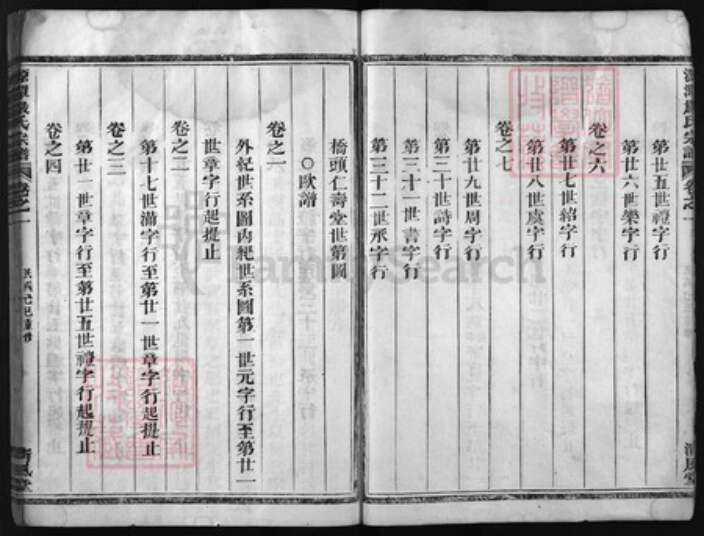 第廿五世禮字行
第廿六世樂字行
卷之六
第廿七世紹字行
第廿八世虞字行
卷之七
第廿九世周字行
第三十世詩字行
第三十一世書字行
第三十二世承字行
橋頭仁壽堂世第圖
○歐譜
卷之一
外紀世系圖內紀世系圖第一世元字行至第廿一
世章字行起提止
卷之二
第十七世滿字行至第廿一世章字行起提止
卷之三
第廿一世章字行至第廿五世禮字行起提止
卷之四
民國己巳重修
清風堂
FamilySearch